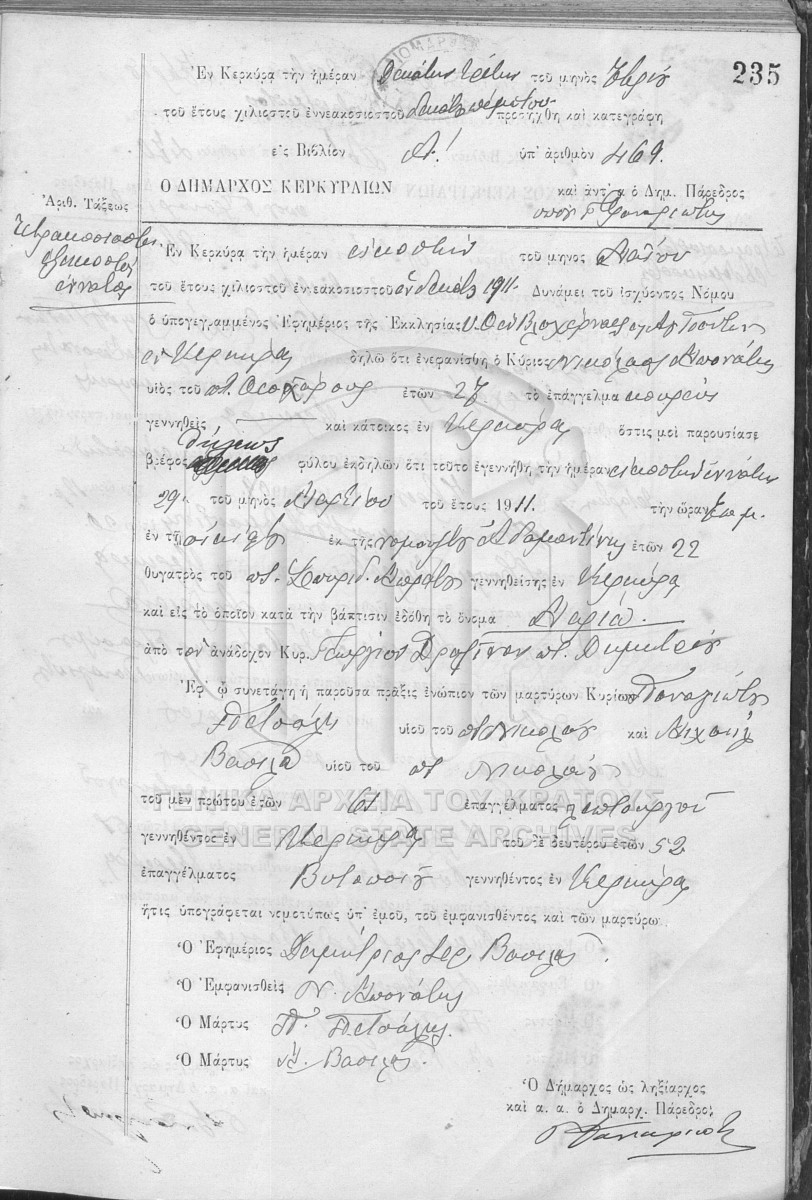 235
Ἐν Κερκύρᾳ τὴν ἡμέραν Δεκάτην τρίτην τοῦ μηνὸς
τοῦ ἔτους χιλιοστοῦ ἐννεακοσιοστοῦ δεκάτου πέμπτου προσήχθη καὶ κατεγράφη
εἰς Βιβλίον Α! ὑπ' ἀριθμὸν 469.
Ο ΔΗΜΑΡΧΟΣ ΚΕΡΚΥΡΑΙΩΝ καὶ ἀντ' αὐτοῦ ὁ Δημ. Πάρεδρος
Ἀριθ. Τάξεως
Τετρακοσιοστὴ
ἑξηκοστὴ
ἐννάτη
Ἐν Κερκύρᾳ τὴν ἡμέραν εἰκοστὴν τοῦ μηνος Μαΐου
τοῦ ἔτους χιλιοστοῦ ἐννεακοσιοστοῦ ἑνδεκάτου 1911. Δυνάμει τοῦ ἰσχύοντος Νόμου
ὁ ὑπογεγραμμένος Ἐφημέριος τῆς Ἐκκλησίας Υ. Θ. Βλαχέρνας
ἐν Κερκύρᾳ δηλῶ ὅτι ἐνεφανίσθη ὁ Κύριος Νικόλαος Μπονάτης
υἱὸς τοῦ ποτ. Θεοχάρους ἐτῶν 27 τὸ ἐπάγγελμα κουρεὺς
γεννηθεὶς καὶ κάτοικος ἐν Κερκύρᾳ ὅστις μοὶ παρουσίασε
βρέφος θήλεως φύλου ἐκδηλῶν ὅτι τοῦτο ἐγεννήθη τὴν ἡμέραν εἰκοστὴν ἐννάτην
29. τοῦ μηνὸς Μαρτίου τοῦ ἔτους 1911. τὴν ὥραν π.μ.
ἐν τῇ οἰκίᾳ ἐκ τῆς νομίμου Ἀδαμαντίνης ἐτῶν 22
θυγατρὸς τοῦ ποτ. Σπυρίδ. γεννηθείσης ἐν Κερκύρᾳ
καὶ εἰς τὸ ὁποῖον κατὰ τὴν βάπτισιν ἐδόθη τὸ ὄνομα Μαρία.
ἀπὸ τὸν ἀνάδοχον Κυρ. Γεώργιον ποτ. Δημητρίου
Ἐφ' ᾧ συνετάγη ἡ παροῦσα πρᾶξις ἐνώπιον τῶν μαρτύρων Κυρίων Παναγιώτου
Πετσάλη υἱοῦ τοῦ ποτ. Νικολάου καὶ Μιχαὴλ
Βασιλᾶ υἱοῦ τοῦ ποτ. Νικολάου
τοῦ μὲν πρώτου ἐτῶν 61 ἐπαγγέλματος λεπτουργοῦ
ΓΕΝΙΚΑ ΑΡΧΕΙΑ ΤΟΥ ΚΡΑΤΟΥΣ
GENERAL STATE ARCHIVES
γεννηθέντος ἐν Κερκύρᾳ τοῦ δὲ δευτέρου ἐτῶν 52
ἐπαγγέλματος γεννηθέντος ἐν Κερκύρᾳ
ἥτις ὑπογράφεται νομοτύπως ὑπ' ἐμοῦ, τοῦ ἐμφανισθέντος καὶ τῶν μαρτύρων
Ὁ Ἐφημέριος Δημήτριος Ἱερ. Βασιλᾶς.
Ὁ Ἐμφανισθεὶς Ν. Μπονάτης
Ὁ Μάρτυς Π. Πετσάλης
Ὁ Μάρτυς Μ. Βασιλᾶς
Ὁ Δήμαρχος ὡς ληξίαρχος
καὶ α. α. ὁ Δημαρχ. Πάρεδρος